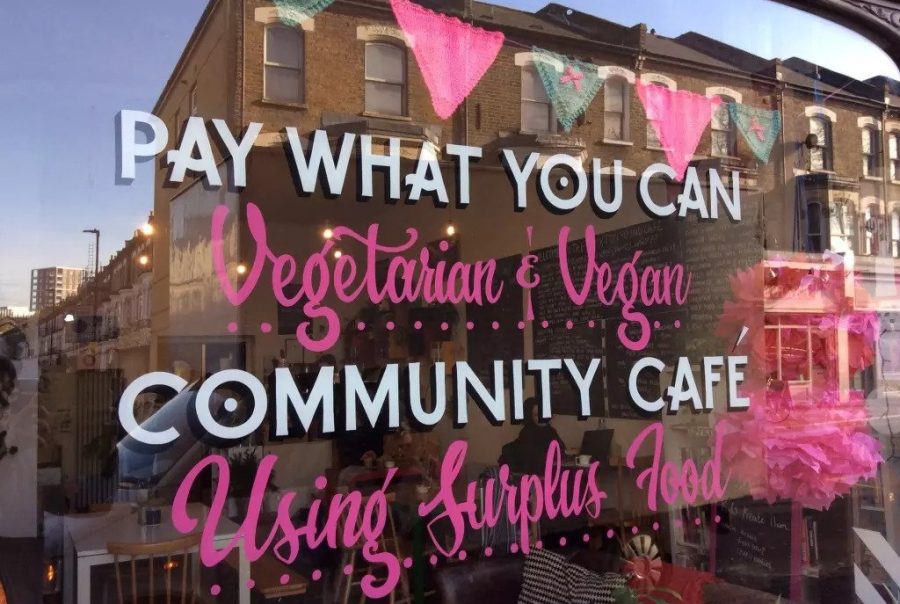 PAY WHAT YOU CAN
Vegetarian & Vegan
COMMUNITY CAFÉ
Using Surplus Food